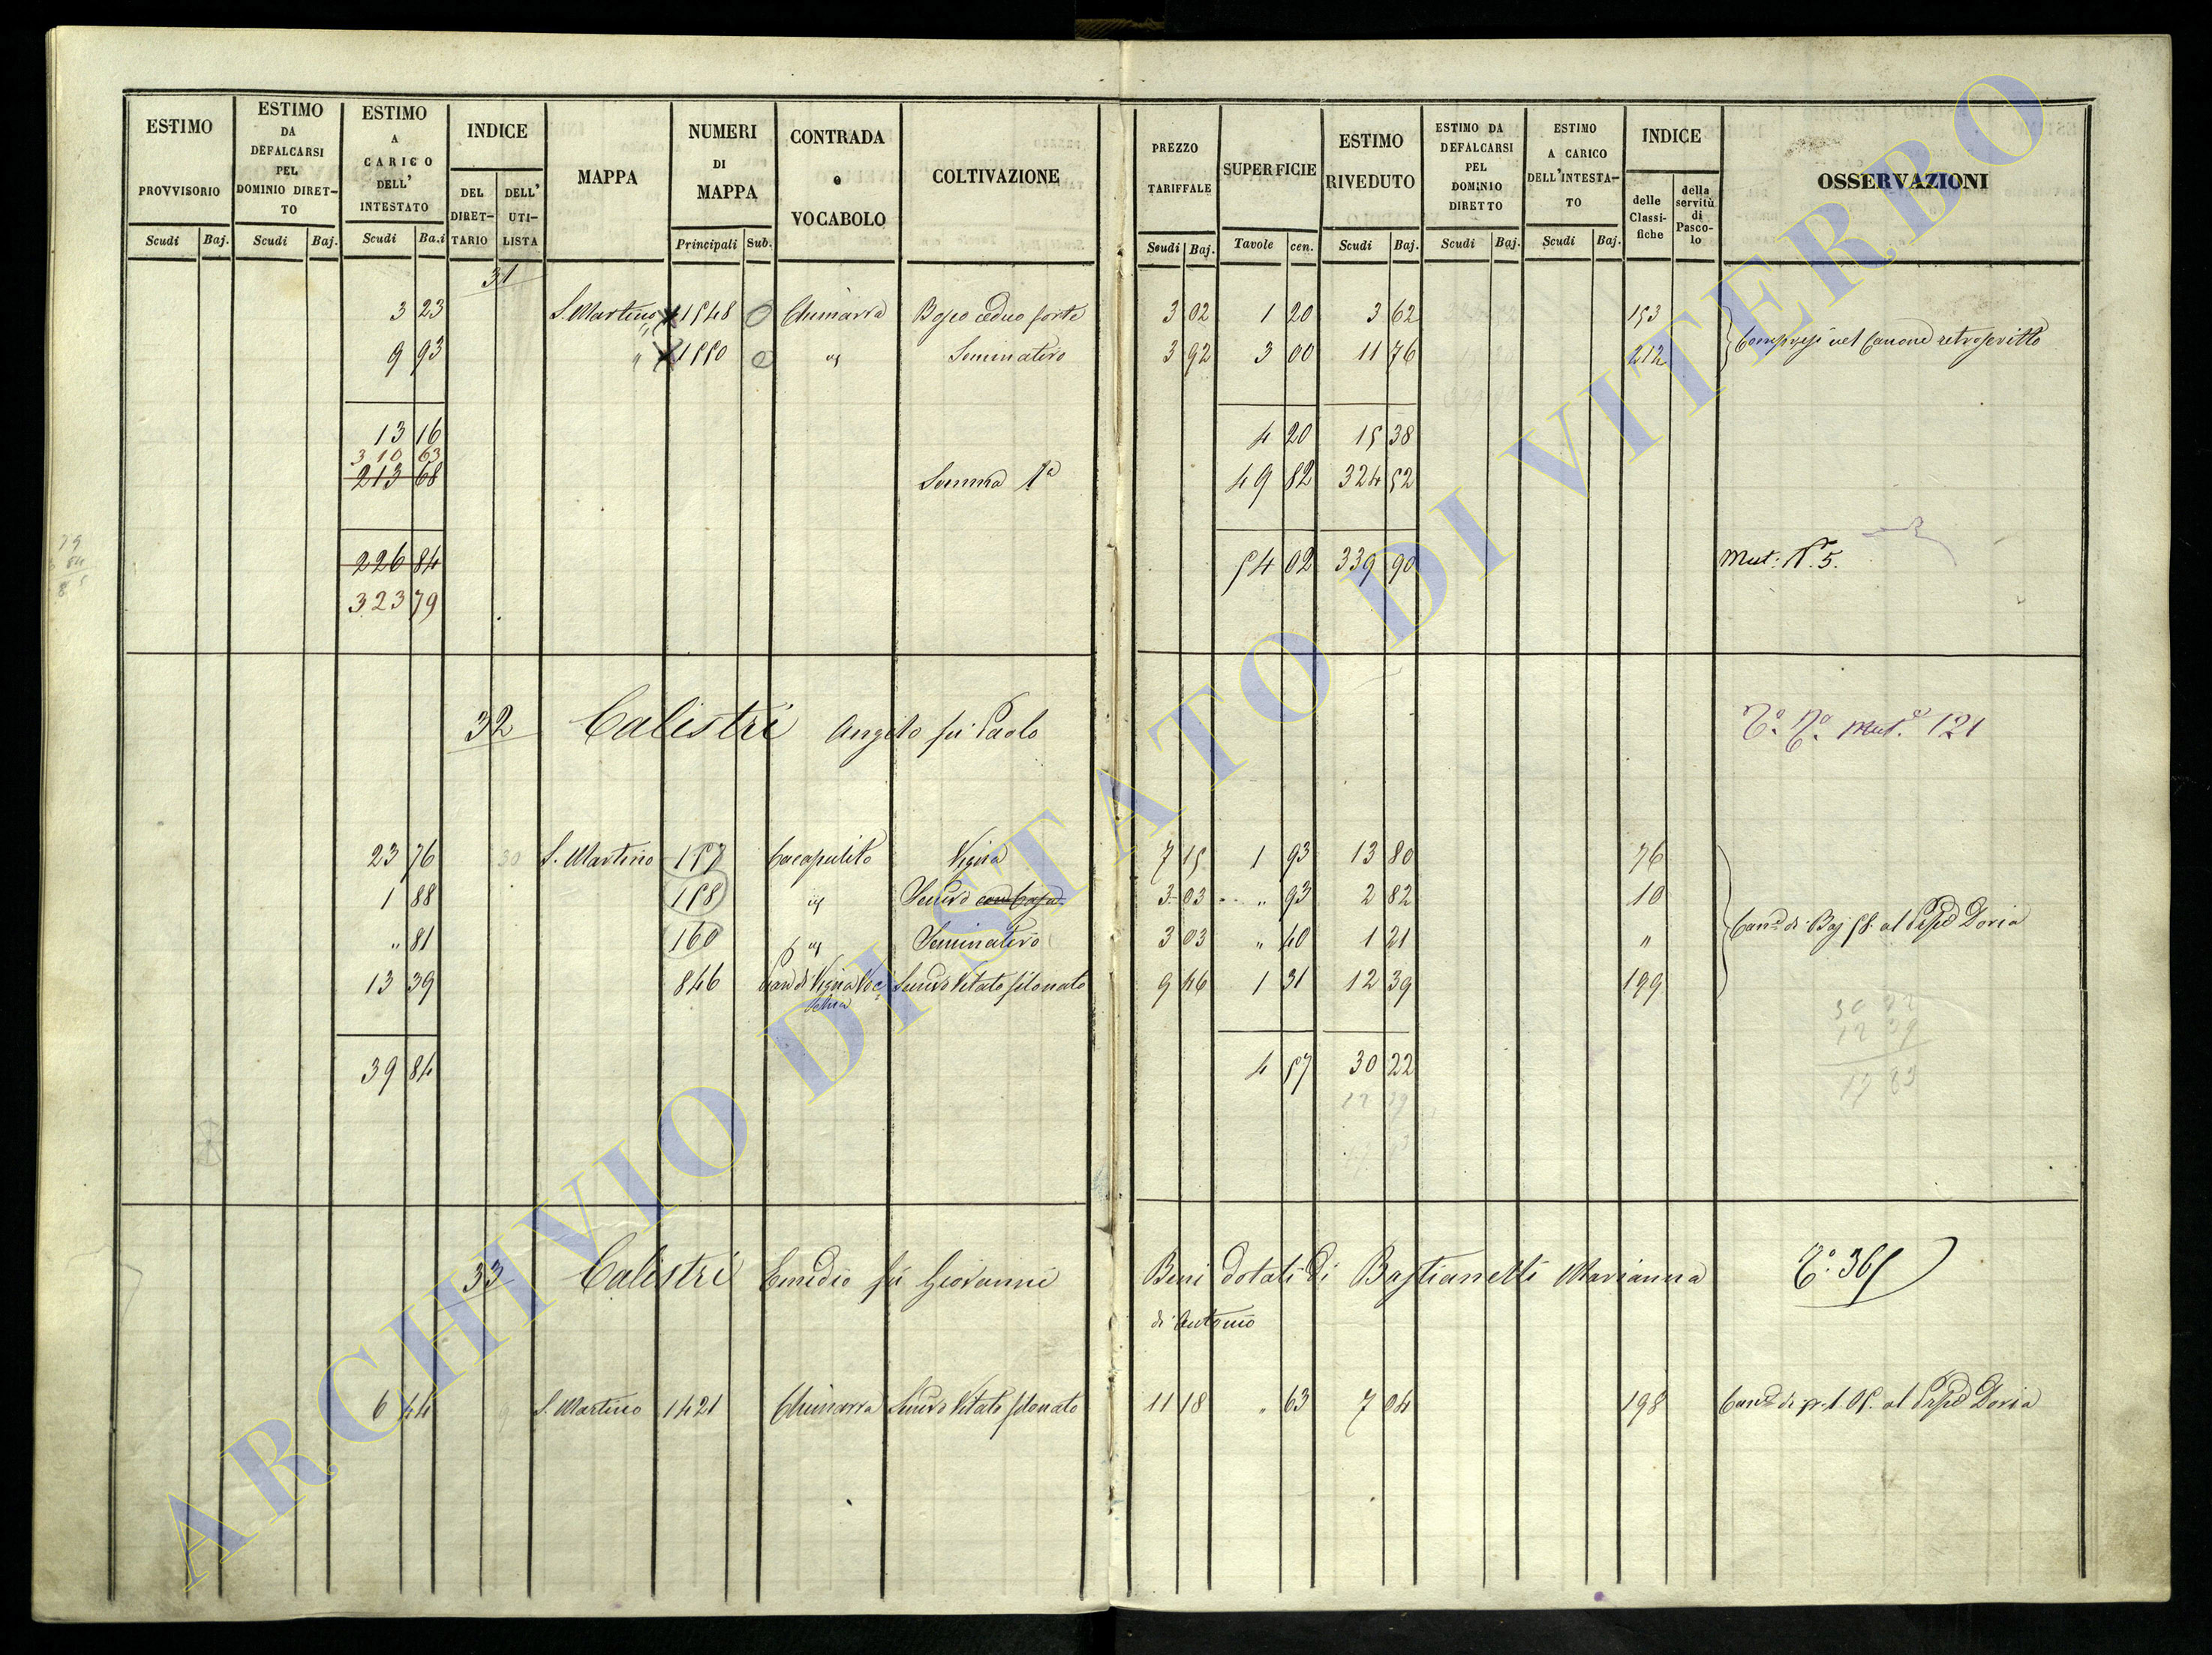 ESTIMO PROVVISORIO Scudi Baj.
ESTIMO DA DEFALCARSI PEL DOMINIO DIRET-TO Scudi Baj.
ESTIMO A CARICO DELL' INTESTATO Scudi Ba.i
INDICE DEL DIRET-TARIO DELL' UTI-LISTA
MAPPA
NUMERI DI MAPPA Principali Sub.
CONTRADA o VOCABOLO
COLTIVAZIONE
PREZZO TARIFFALE Scudi Baj.
SUPERFICIE Tavole cen.
ESTIMO RIVEDUTO Scudi Baj.
ESTIMO DA DEFALCARSI PEL DOMINIO DIRETTO Scudi Baj.
ESTIMO A CARICO DELL'INTESTA-TO Scudi Baj.
INDICE delle Classi-fiche della servitù di Pasco-lo
OSSERVAZIONI
31
3 23 S. Martino 1548 Chimarra Bosco ceduo forte 3 02 1 20 3 62 153
Compresi nel Canone retroscritto
9 93 " 1550 Seminativo 3 92 3 00 11 76 212
13 16 4 20 15 38
310 63
213 68 Somma 1a 49 82 324 52
226 84 54 02 339 90 Mut: N. 5.
323 79
32 Calistri Angelo fu Paolo Mut. 121
23 76 30 S. Martino 157 Cacapulito Vigna 7 15 1 93 13 80 76
1 88 158 3 03 " 93 2 82 10
Canne di Baj 58. al Doria
" 81 160 Seminativo 3 03 " 40 1 21 "
13 39 846 Vitato filonato 9 46 1 31 12 39 199
30 22
12 39
39 84 4 57 30 22
17 83
33 Calistri Emidio fu Giovanni Beni dotali di Bastianelli Marianna
di Antonio
6 44 9 S. Martino 1421 Chimarra Vitato filonato 11 18 " 63 7 04 198 al Doria
ARCHIVIO DI STATO DI VITERBO